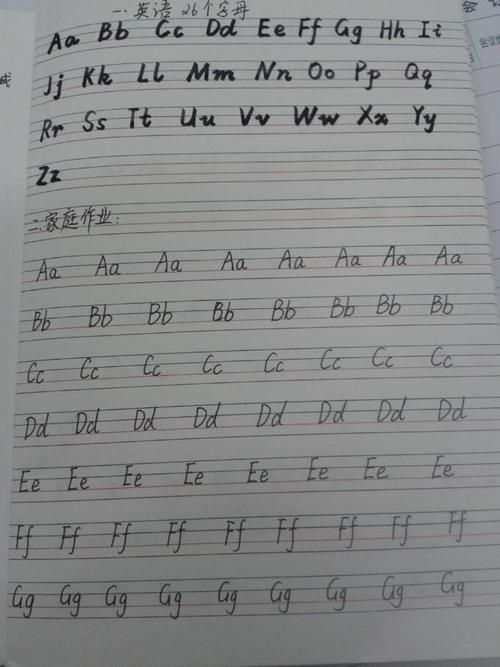 一、英语 26个字母
Aa Bb Cc Dd Ee Ff Gg Hh Ii
Jj Kk Ll Mm Nn Oo Pp Qq
Rr Ss Tt Uu Vv Ww Xx Yy
Zz
二、家庭作业:
Aa Aa Aa Aa Aa Aa Aa Aa
Bb Bb Bb Bb Bb Bb Bb Bb
Cc Cc Cc Cc Cc Cc Cc Cc
Dd Dd Dd Dd Dd Dd Dd Dd
Ee Ee Ee Ee Ee Ee Ee Ee
Ff Ff Ff Ff Ff Ff Ff Ff Ff
Gg Gg Gg Gg Gg Gg Gg Gg Gg